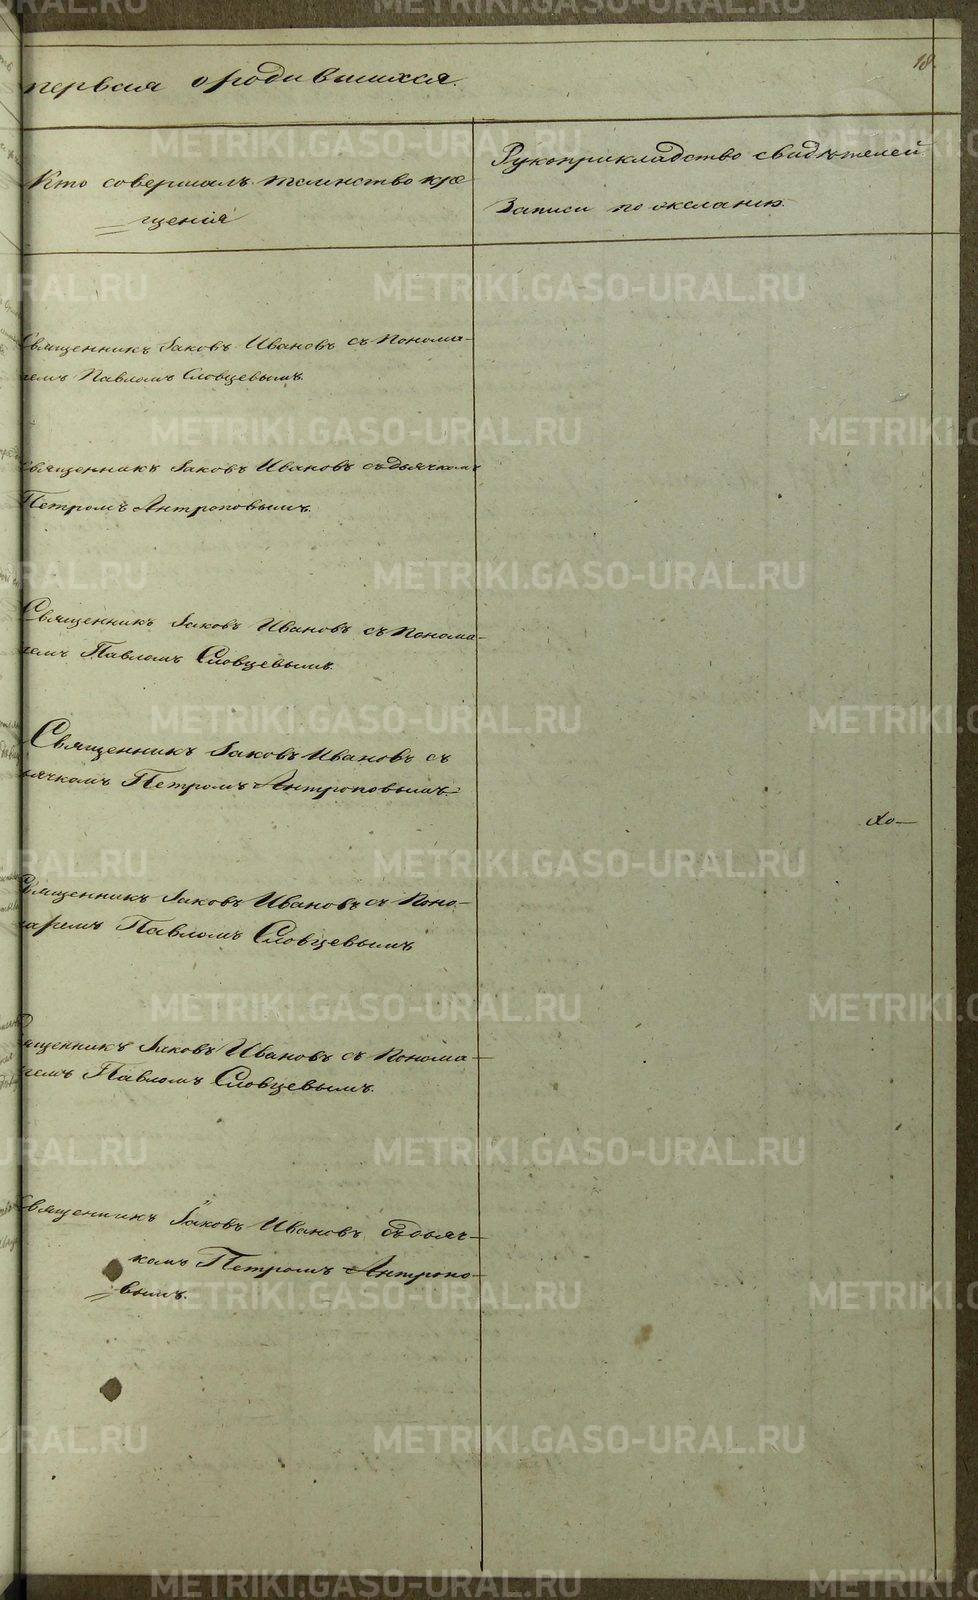 18.
первая о родившихся.
Кто совершалъ таинство кре
щенія
Рукоприкладство свидѣтелей
Записи по желанію.
Священникъ Іаковъ Ивановъ съ Понома-
ремъ Павломъ Словцевымъ.
Священникъ Іаковъ Ивановъ съ дьячкомъ
Петромъ Антроповымъ.
Священникъ Іаковъ Ивановъ съ Понома-
ремъ Павломъ Словцевымъ.
Священникъ Іаковъ Ивановъ съ
дьячкомъ Петромъ Антроповымъ.
Священникъ Іаковъ Ивановъ съ Поно-
маремъ Павломъ Словцевымъ
Священникъ Іаковъ Ивановъ съ Понома-
ремъ Павломъ Словцевымъ.
Священникъ Іаковъ Ивановъ съ дьяч-
комъ Петромъ Антропо-
вымъ.
METRIKI.GASO-URAL.RU